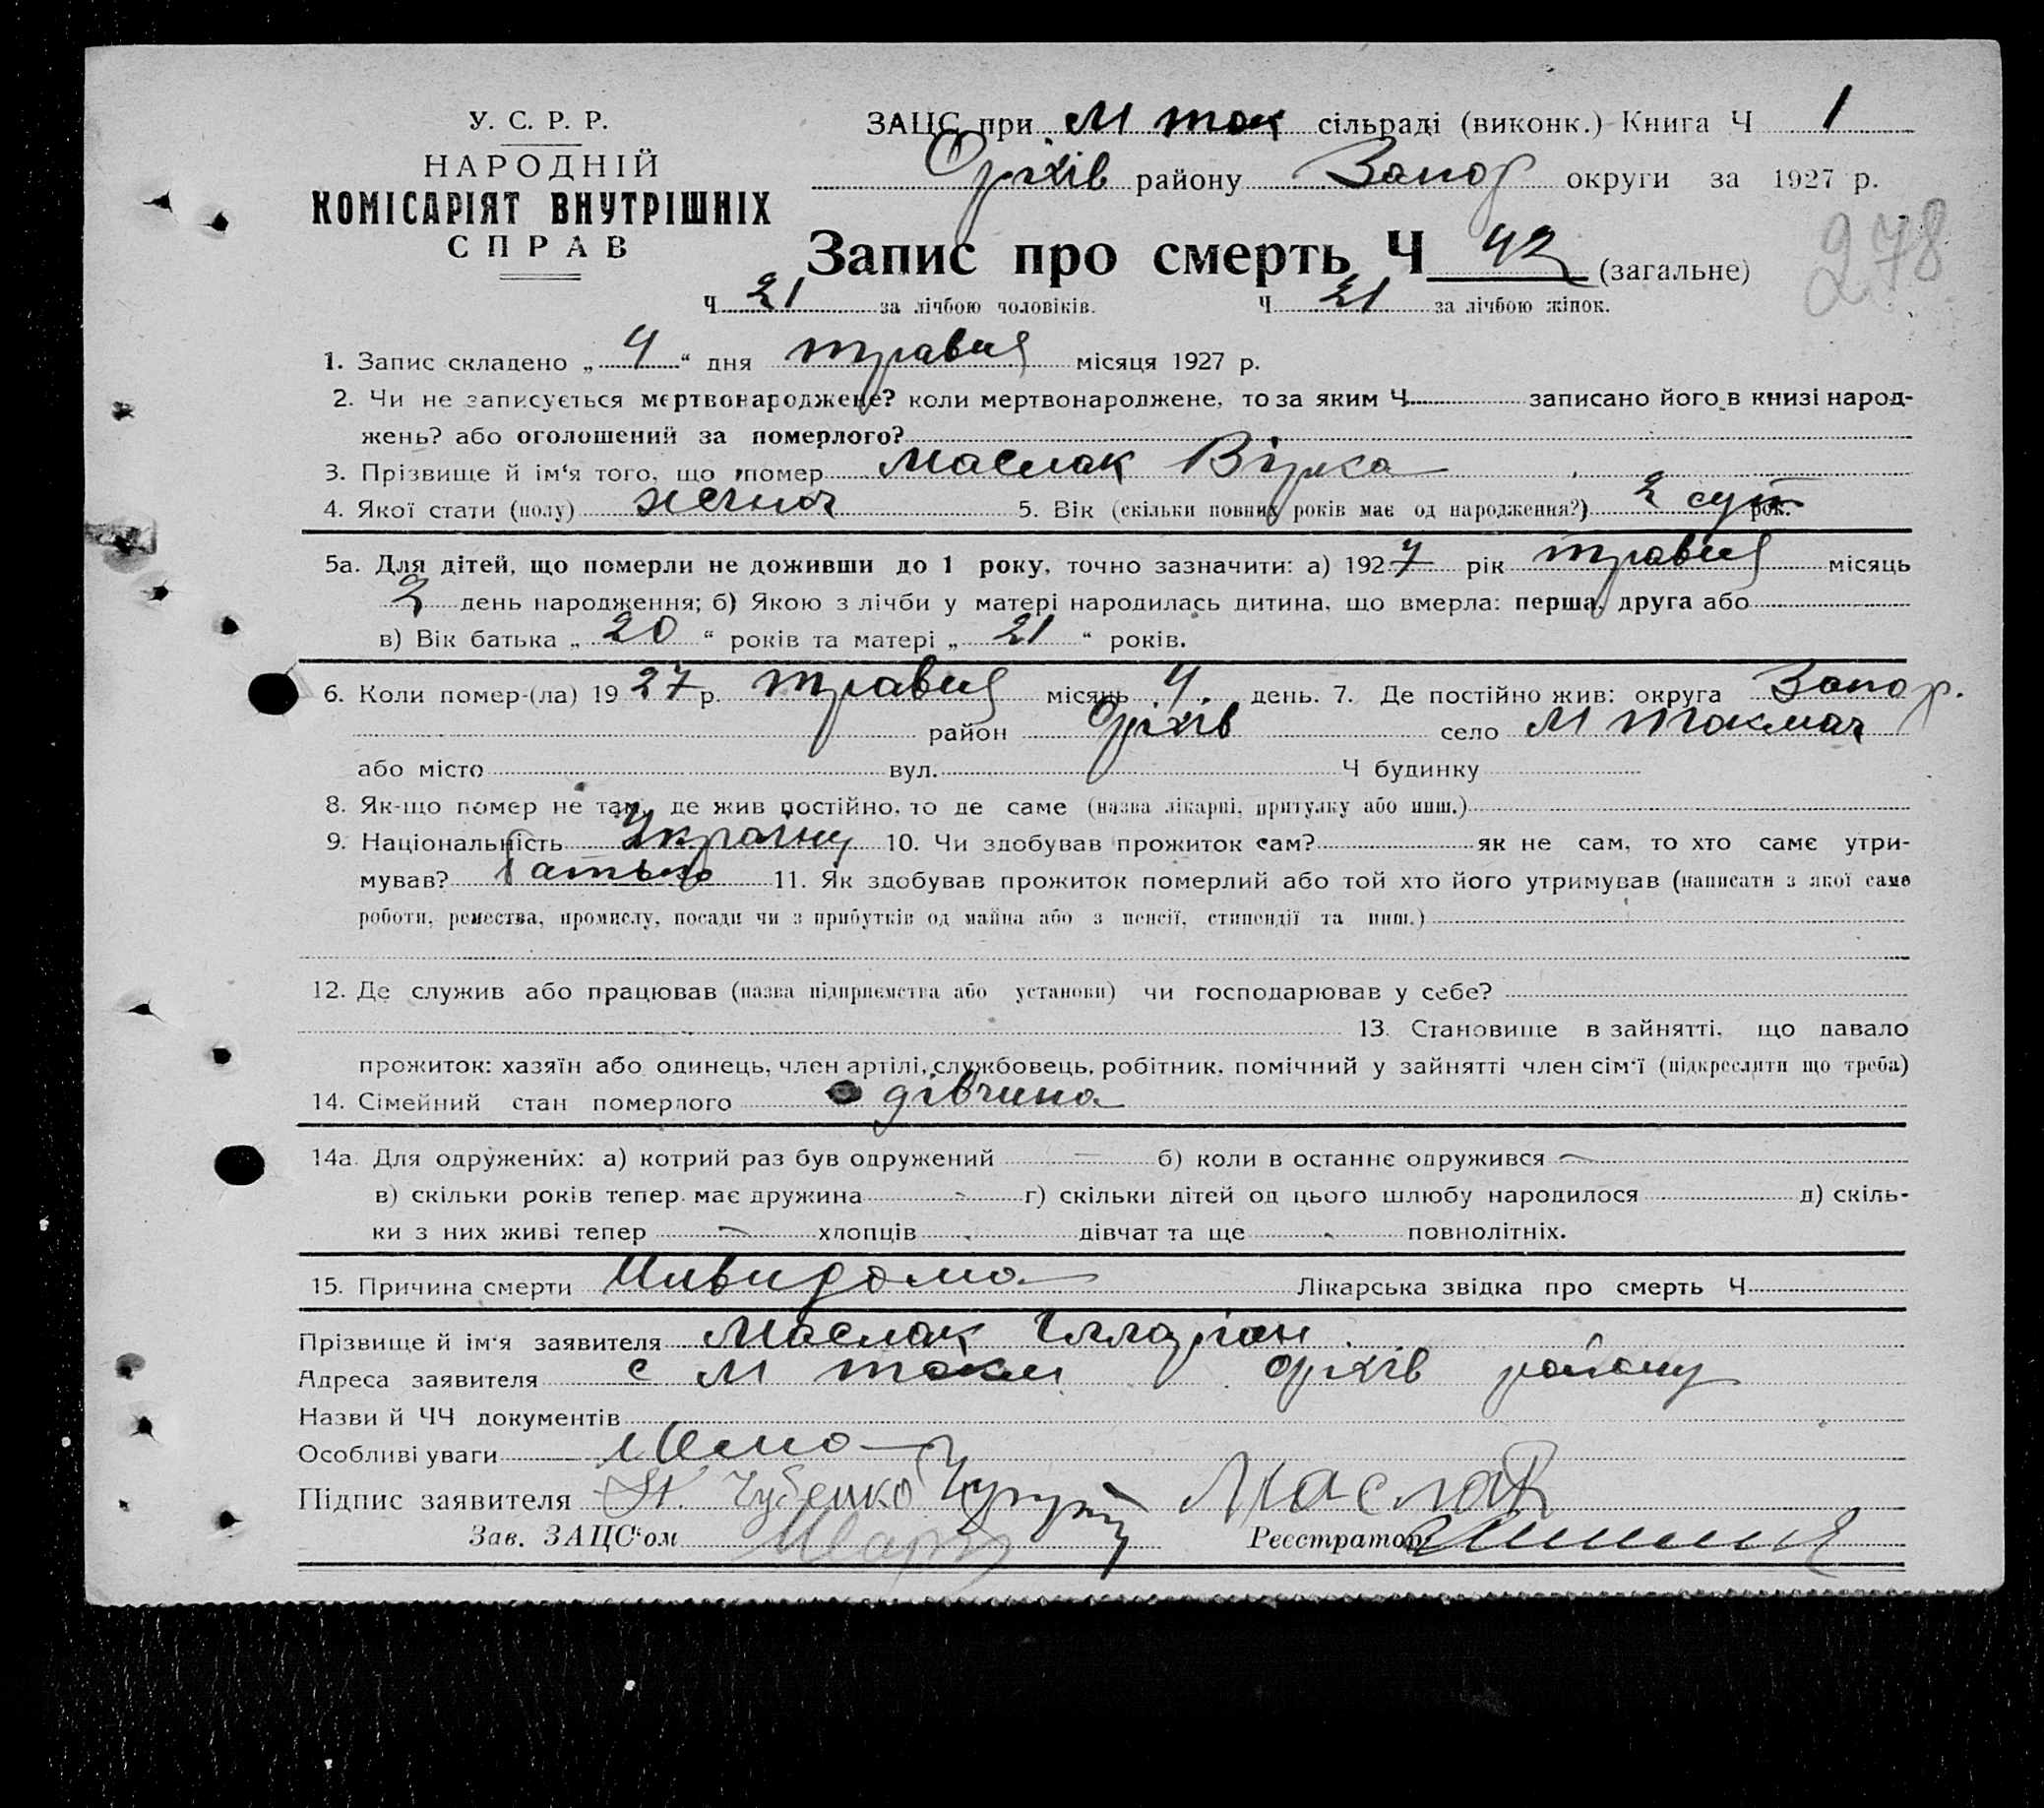 У. С. Р. Р.
НАРОДНІЙ
КОМІСАРІЯТ ВНУТРІШНІХ
СПРАВ
ЗАЦС при М ток сільраді (виконк.) Книга Ч 1
Оріхів району Запор округи за 1927 р.
278
Запис про смерть Ч 42 (загальне)
Ч 21 за лічбою чоловіків. Ч 21 за лічбою жінок.
1. Запис складено „ 4 “ дня травня місяця 1927 р.
2. Чи не записується мертвонароджене? коли мертвонароджене, то за яким Ч записано його в книзі народ-
жень? або оголошений за померлого?
3. Прізвище й ім‘я того, що помер Маслак Вірка
4. Якої стати (полу) жіноч 5. Вік (скільки повних років має од народження?) 2 сут рок.
5а. Для дітей, що померли не доживши до 1 року, точно зазначити: а) 1927 рік травня місяць
2 день народження; б) Якою з лічби у матері народилась дитина, що вмерла: перша, друга або
в) Вік батька „ 20 “ років та матері „ 21 “ років.
6. Коли помер-(ла) 1927 р. травня місяць 4 день. 7. Де постійно жив: округа Запор.
район Оріхів село М Токмач
або місто вул. Ч будинку
8. Як-що помер не там, де жив постійно, то де саме (назва лікарні, притулку або инш.)
9. Національність Україну 10. Чи здобував прожиток сам? як не сам, то хто самє утри-
мував? батько 11. Як здобував прожиток померлий або той хто його утримував (написати з якої саме
роботи, ремества, промислу, посади чи з прибутків од майна або з пенсії, стипендії та инш.)
12. Де служив або працював (назва підприємства або установи) чи господарював у себе?
13. Становище в зайнятті, що давало
прожиток: хазяїн або одинець, член артілі, службовець, робітник, помічний у зайнятті член сім‘ї (підкреслити що треба)
14. Сімейний стан померлого дівчина
14а. Для одружених: а) котрий раз був одружений б) коли в останнє одружився
в) скільки років тепер має дружина г) скільки дітей од цього шлюбу народилося д) скіль-
ки з них живі тепер хлопців дівчат та ще повнолітніх.
15. Причина смерти Нивидома Лікарська звідка про смерть Ч
Прізвище й ім‘я заявителя Маслак Ілларіон
Адреса заявителя с М токм Оріхів району
Назви й ЧЧ документів
Особливі уваги
Підпис заявителя Чубенко Маслак
Зав. ЗАЦС“ом Реєстратор